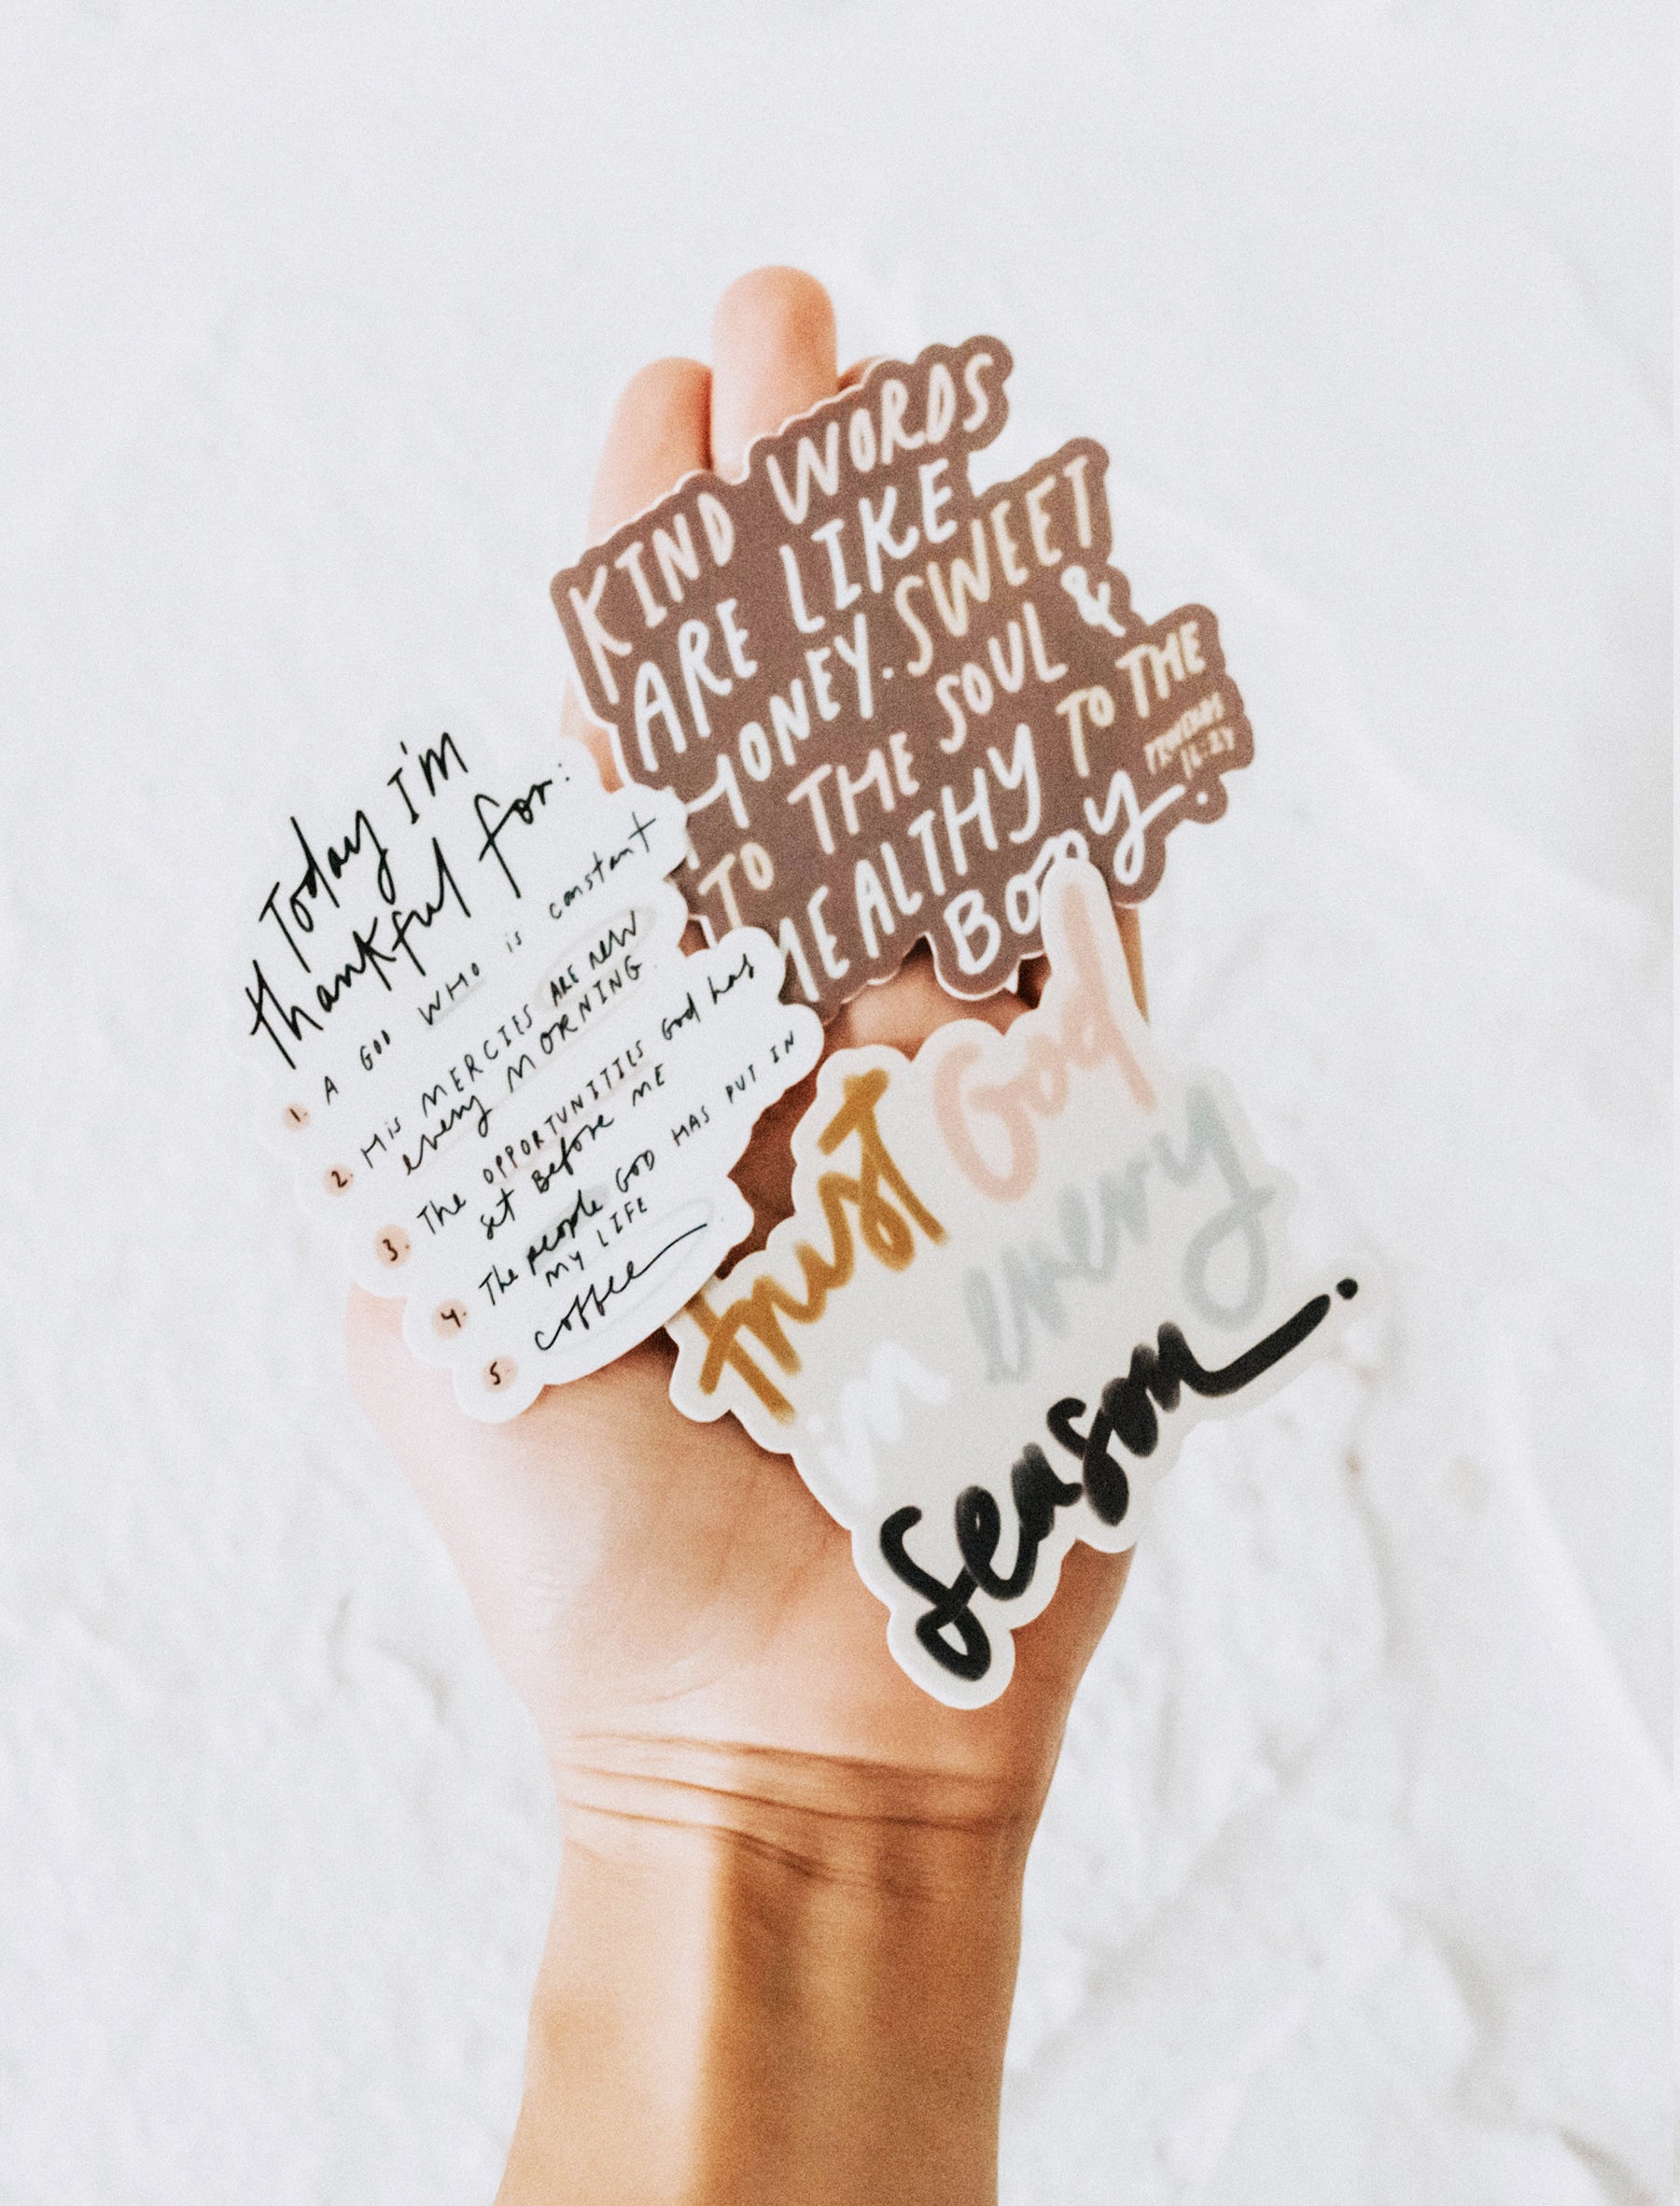 KIND WORDS
ARE LIKE
HONEY. SWEET
TO THE SOUL &
HEALTHY TO THE
BODY.
PROVERBS
16:24
Today I'm
thankful for:
1. A GOD WHO is constant
2. His MERCIES ARE NEW
every MORNING.
3. The OPPORTUNITIES God has
set Before ME
4. The people GOD HAS PUT IN
MY LIFE
5. coffee
trust God
in every
season.